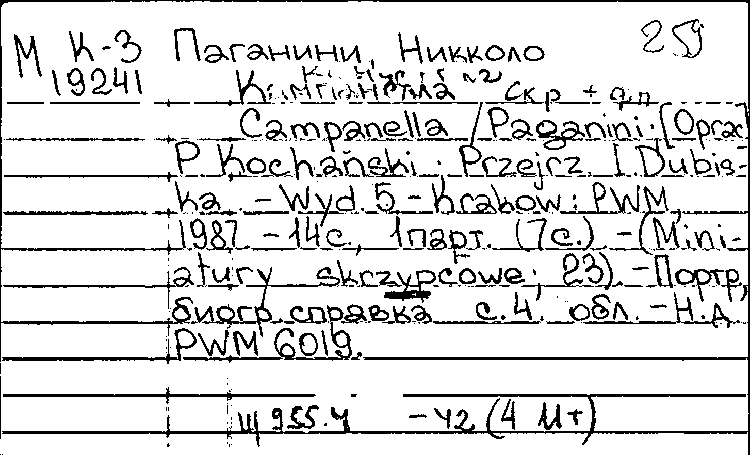 М К-3 Паганини, Никколо 259
19241 Кампанелла скр + ф.п
Campanella / Paganini; [Oprac
P Kochański; Przejrz. I. Dubis-
ka. - Wyd. 5 - Krakow: PWM,
1987. - 14с, 1парт. (7с.) - (Mini-
atury skrzypcowe; 23). - Портр,
биогр. справка с. 4. обл. - Н.д
PWM 6019.
Щ955.4 - 42 (4 Ит)